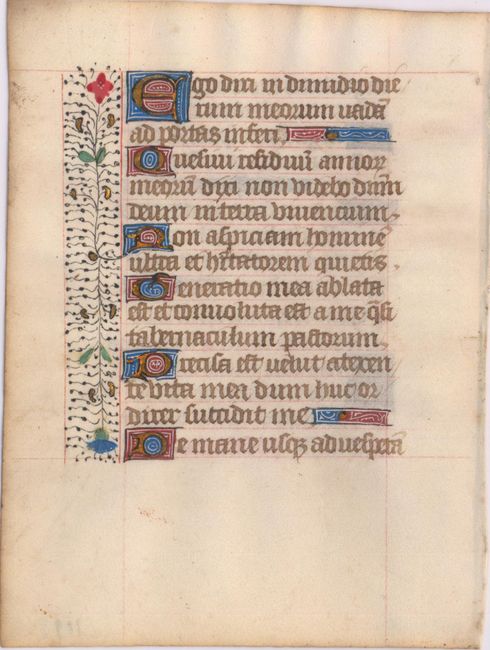 Ego dixi in dimidio die
rum meorum uadā
ad portas inferi
Quesiui residuū annor
meorū dixi non videbo dn̄m
deum in terra viuencium.
Non aspiciam homine
ultra et hītatorem quietis.
Generatio mea ablata
est et conuoluta est a me q̄si
tabernaculum pastorum.
Precisa est velut a texen
te vita mea dum huc or
direr succidit me
De mane usqꝫ ad uesperā